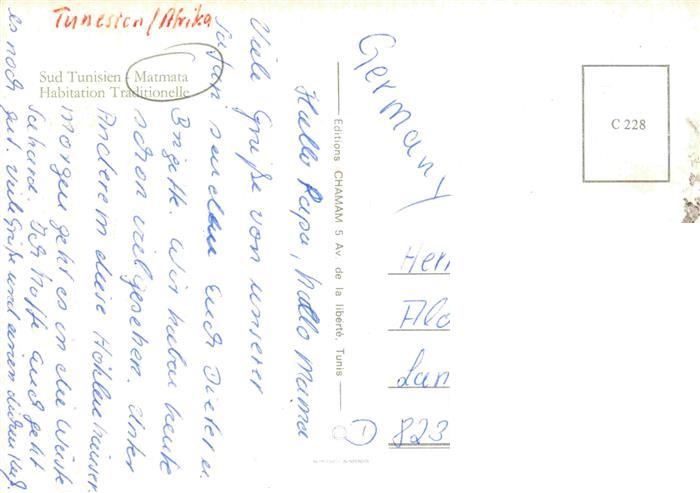 Tunesien/Afrika
Sud Tunisien - Matmata
Habitation Traditionelle
Hallo Papa, hallo Mama
Viele Grüße von unserer
Safari senden Euch Dieter u.
Brigitte. Wir haben heute
schon viel gesehen. Unter
Anderem diese Höhlenhäuser.
Morgen geht es in die Wüste
Sahara. Ich hoffe Euch geht
es noch gut. Viele Grüße und einen dicken Kuß.
Editions CHAMAM 5 Av. de la liberté, Tunis
Germany
C 228
Herr
Alo
Lan
823